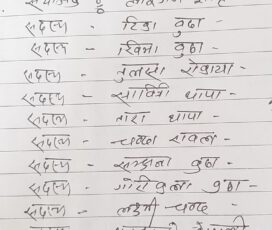 सदस्य - टिका बुढा -
सदस्य - खिमा बुढा -
सदस्य - तुलसा रोकाया -
सदस्य - सावित्री थापा -
सदस्य - तारा थापा -
सदस्य - रावल -
सदस्य - सम्झना बुढा -
सदस्य - गोरी बुढा -
सदस्य - लक्ष्मी चन्द -